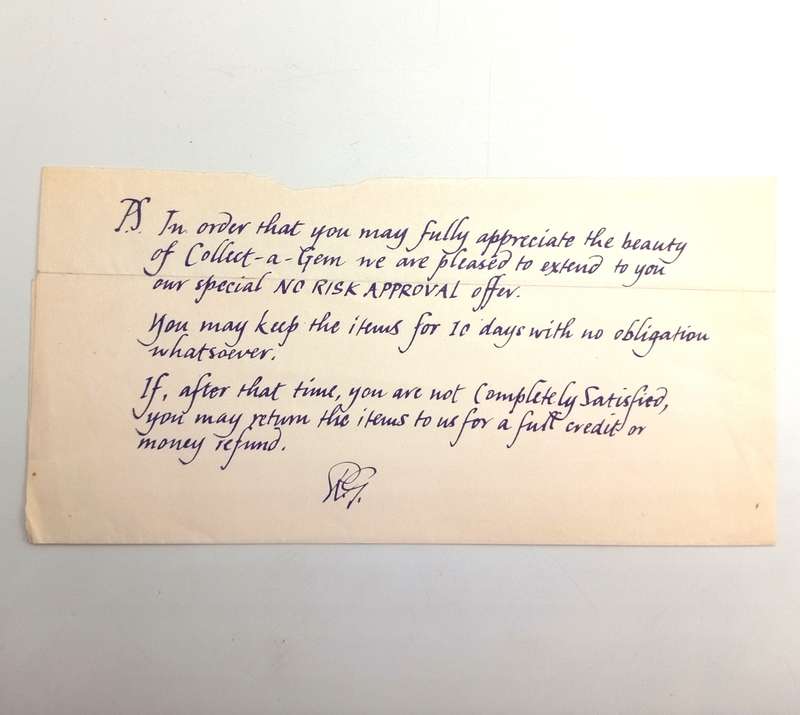 P.S. In order that you may fully appreciate the beauty
of Collect-a-Gem we are pleased to extend to you
our special NO RISK APPROVAL offer.
You may keep the items for 10 days with no obligation
whatsoever.
If, after that time, you are not Completely Satisfied,
you may return the items to us for a full credit or
money refund.
R.G.